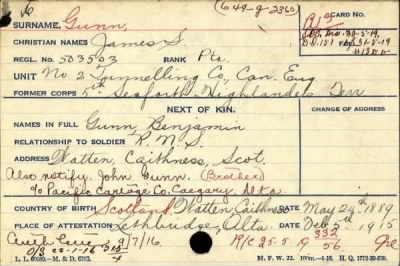 6 (649-G-2360)
SURNAME. Gunn,
CARD NO.
CHRISTIAN NAMES James S.
S.O.S. Dis. 30-5-19.
REGL. No. 503503 RANK Pte.
31-5-19
UNIT No. 2 Tunnelling Co., Can. Eng.
FORMER CORPS 5th Seaforth Highlanders Terr.
NEXT OF KIN.
CHANGE OF ADDRESS
NAMES IN FULL Gunn, Benjamin
RELATIONSHIP TO SOLDIER
ADDRESS Watten, Caithness, Scot.
Also notify. John Gunn. (Brother)
c/o Pacific Cartage Co. Calgary, Alta.
COUNTRY OF BIRTH Scotland, Watten, Caithness DATE May 24th 1889
PLACE OF ATTESTATION Lethbridge, Alta. DATE Dec 5th 1915
O/S 22-1-16 9/7/16. R/C 25-5-19 332
56
L. L. 60089.—M. & D. 6312. M. F. W. 22. H. Q. 1772-39-839.